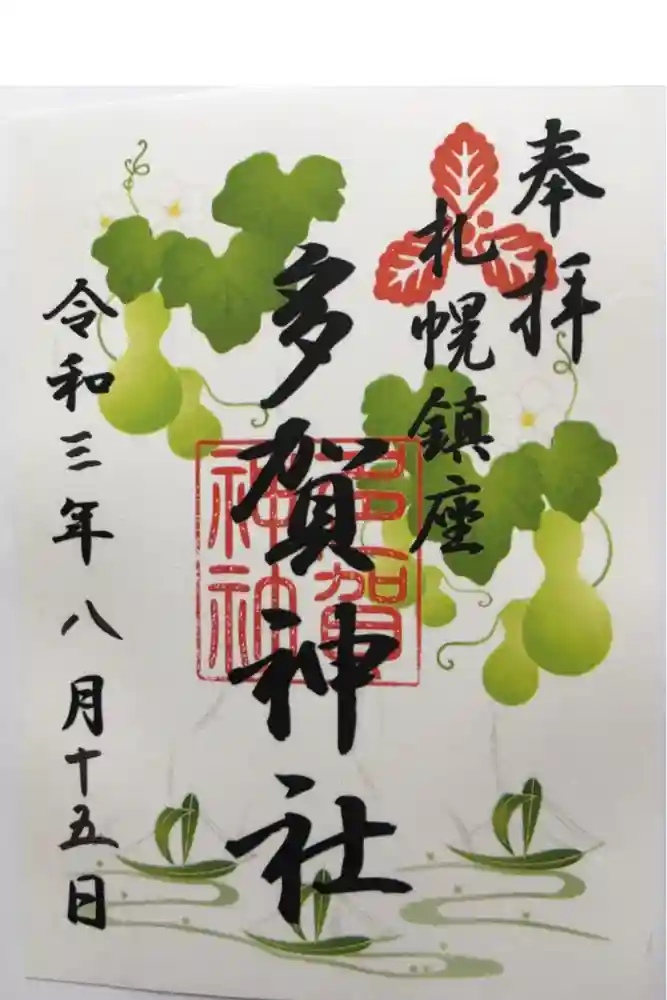 奉拝
札幌鎮座
多賀神社
令和三年八月十五日